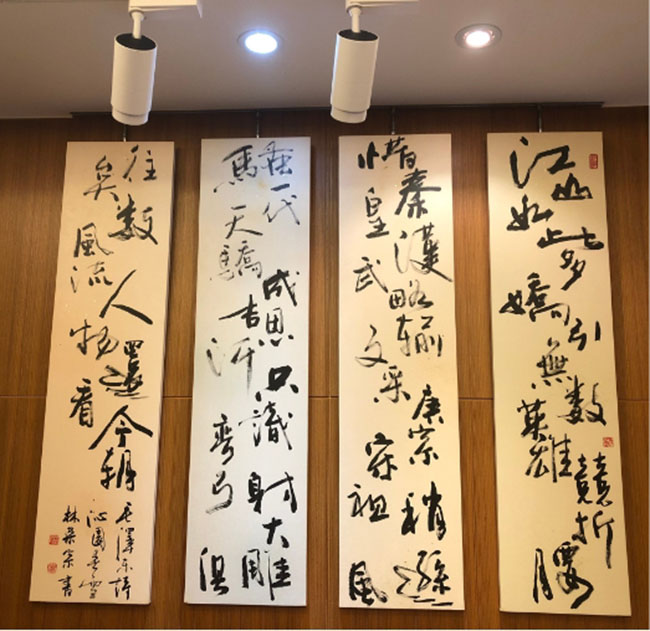 江山如此多嬌引無數英雄競折腰
惜秦皇漢武略輸文采唐宗宋祖稍遜風
騷一代天驕成吉思汗只識彎弓射大雕俱
往矣數風流人物還看今朝
毛澤東詩
沁園春雪
林 宗書